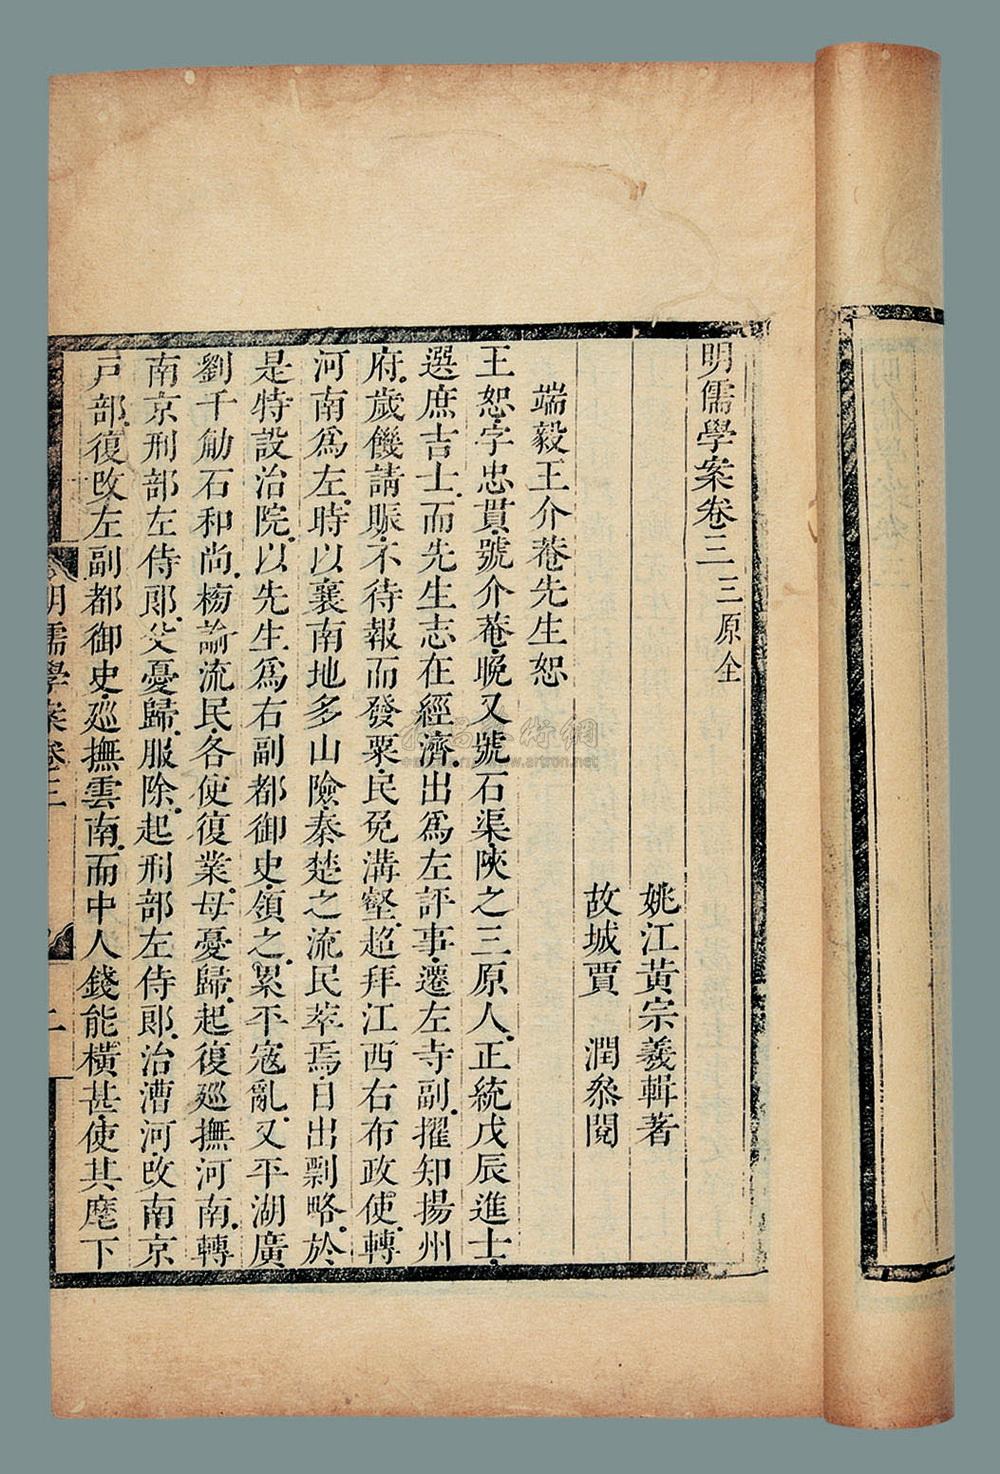 明儒學案卷三 三原全
姚江黃宗羲輯著
故城賈 潤叅閱
端毅王介菴先生恕
王恕字忠貫號介菴晚又號石渠陜之三原人正統戊辰進士
選庶吉士而先生志在經濟出爲左評事遷左寺副擢知揚州
府歲饑請賑不待報而發粟民免溝壑超拜江西右布政使轉
河南爲左時以襄南地多山險秦楚之流民萃焉日出剽略於
是特設治院以先生爲右副都御史領之累平寇亂又平湖廣
劉千觔石和尚榜諭流民各使復業母憂歸起復廵撫河南轉
南京刑部左侍郎父憂歸服除起刑部左侍郎治漕河改南京
戸部復改左副都御史廵撫雲南而中人錢能橫甚使其麾下
明儒學案卷三
www.artron.net